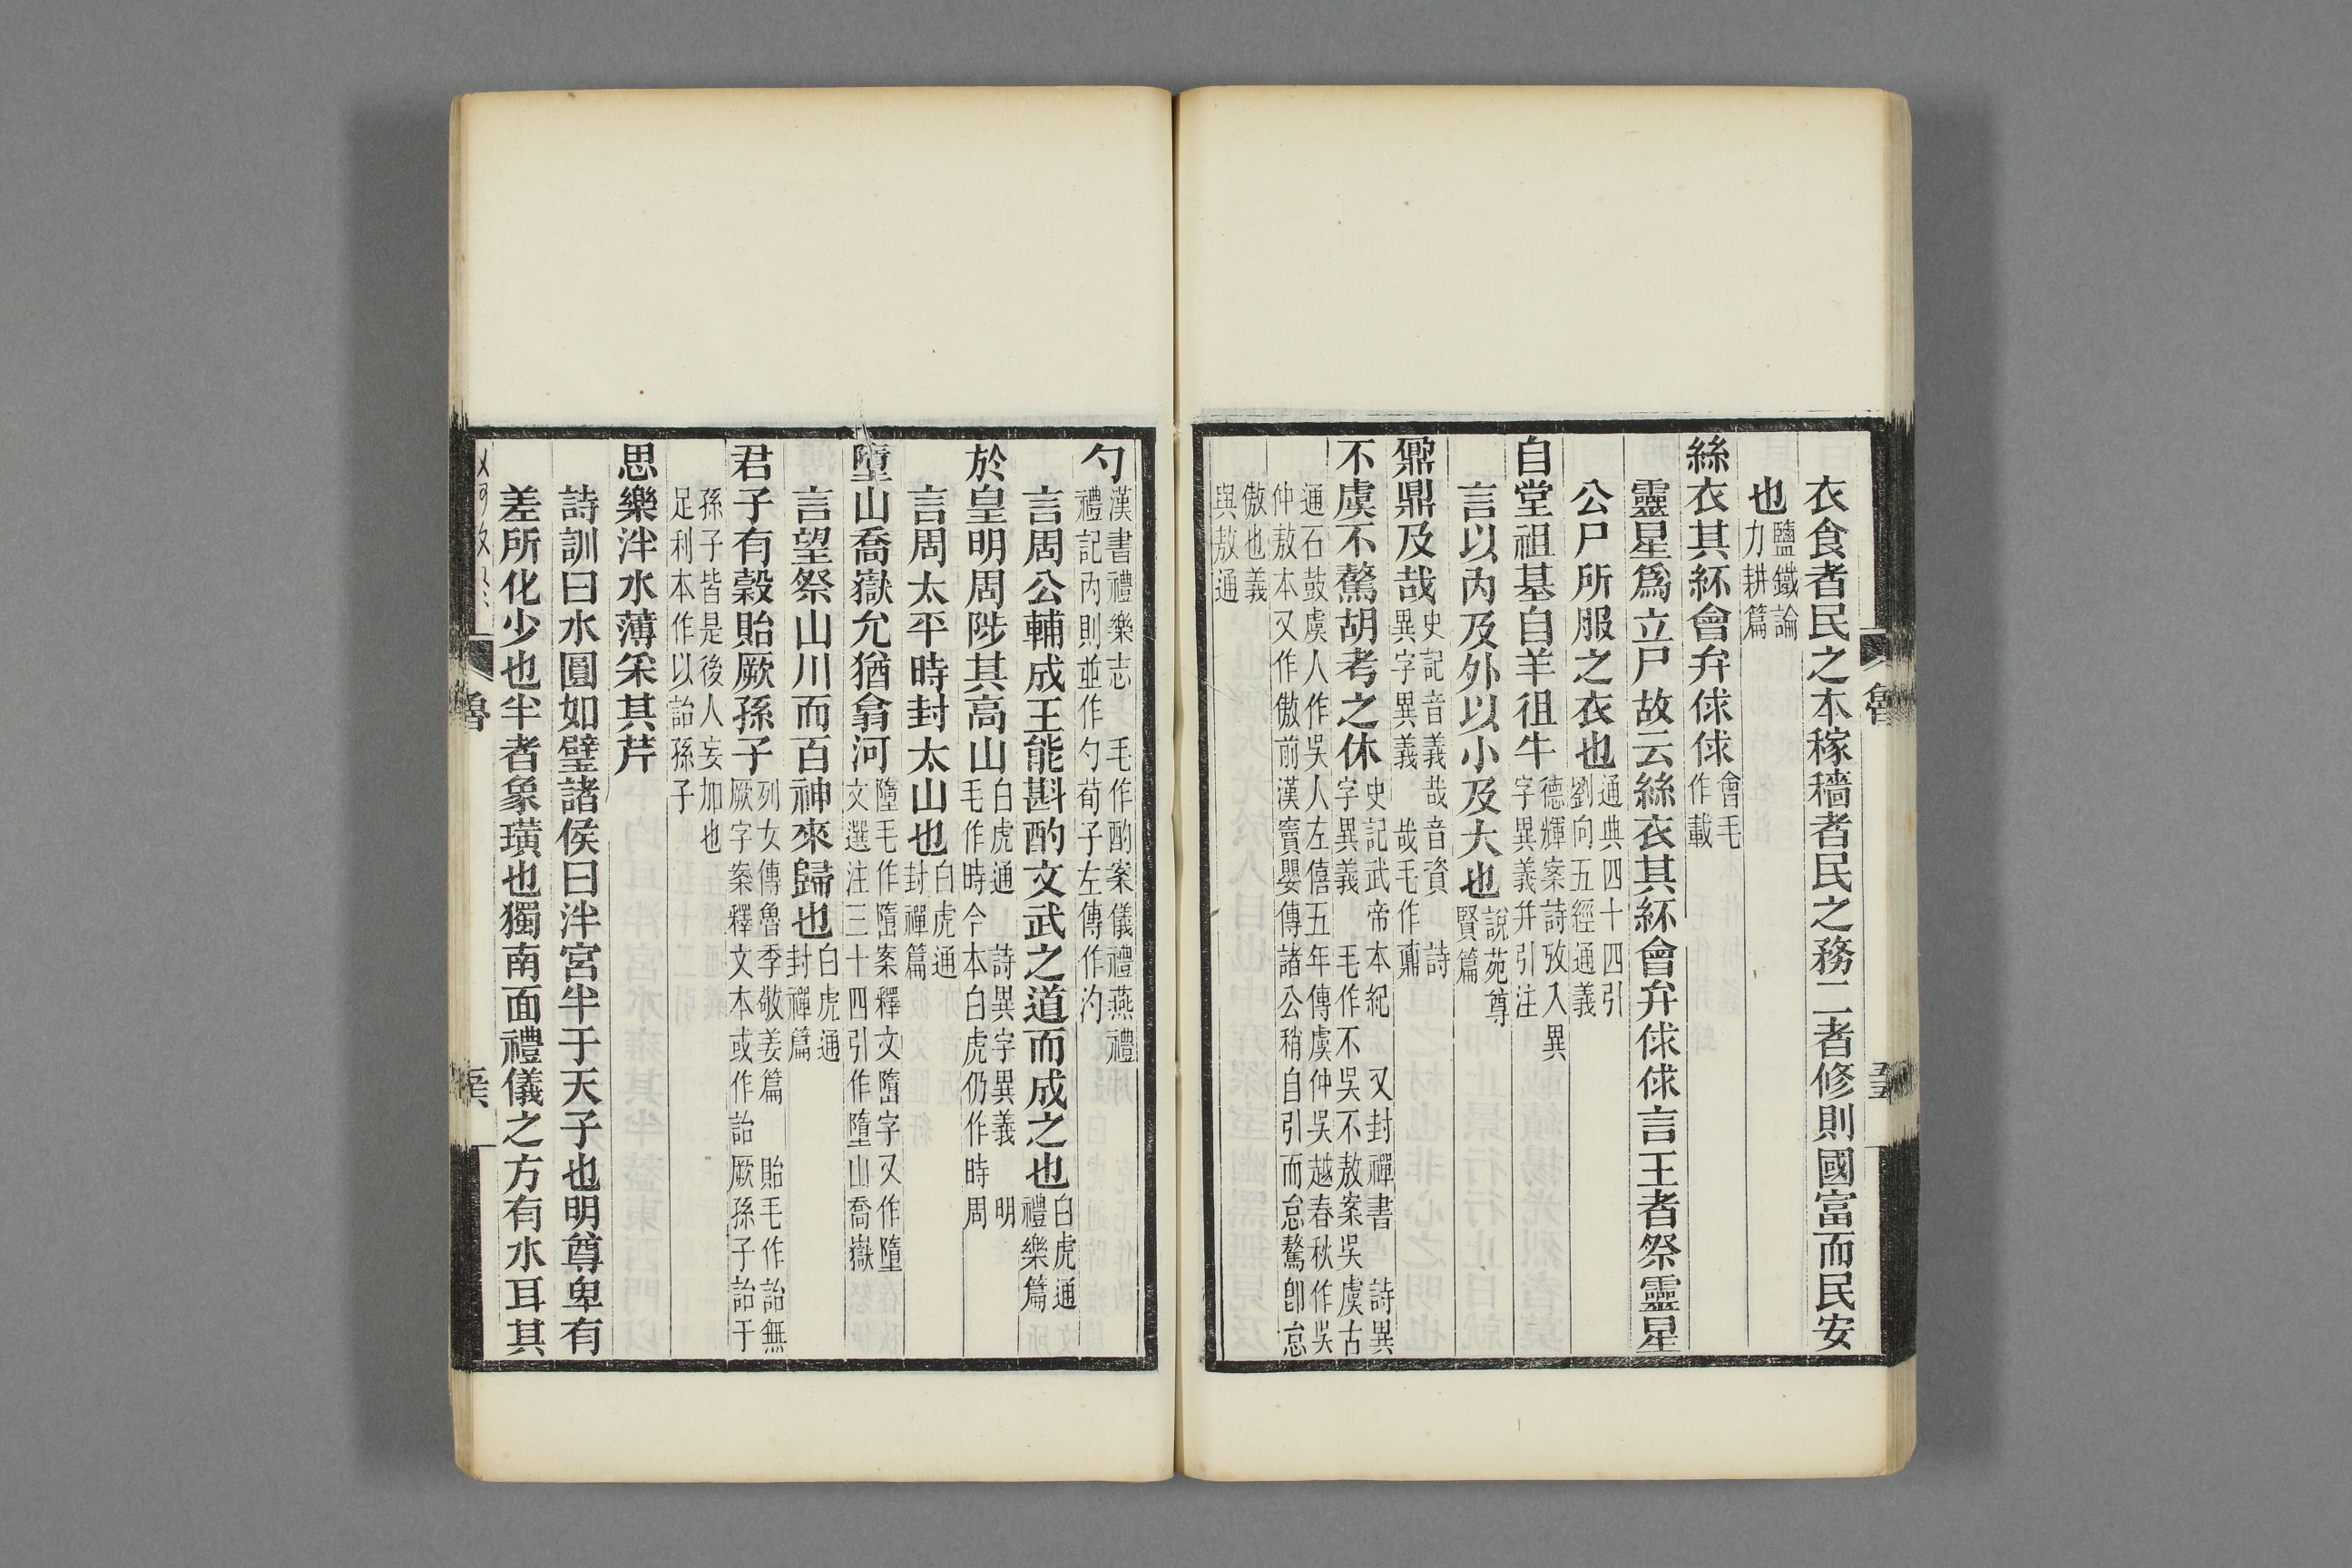 衣食者民之本稼穡者民之務二者修則國富而民安
也鹽鐵論力耕篇
絲衣其紑會弁俅俅會毛作載
靈星爲立尸故云絲衣其紑會弁俅俅言王者祭靈星
公尸所服之衣也通典四十四引劉向五經通義
自堂徂基自羊徂牛德輝案詩攷入異字異義幷引注
言以內及外以小及大也說苑尊賢篇
鼐鼎及哉史記音義哉音資 詩異字異義 哉毛作鼒
不虞不驁胡考之休史記武帝本紀 又封禪書 詩異字異義 毛作不吳不敖案吳虞古
通石鼓虞人作吳人左僖五年傳虞仲吳越春秋作吳仲敖本又作傲前漢竇嬰傳諸公稍自引而怠驁卽怠
傲也義與敖通
魯
五五
勺漢書禮樂志 毛作酌案儀禮燕禮禮記內則並作勺荀子左傳作汋
言周公輔成王能斟酌文武之道而成之也白虎通禮樂篇
於皇明周陟其高山白虎通 詩異字異義 明毛作時今本白虎仍作時周
言周太平時封太山也白虎通封禪篇
墮山喬嶽允猶翕河墮毛作嶞案釋文嶞字又作墮文選注三十四引作墮山喬嶽
言望祭山川而百神來歸也白虎通封禪篇
君子有穀貽厥孫子列女傳魯季敬姜篇 貽毛作詒無厥字案釋文本或作詒厥孫子詒于
孫子皆是後人妄加也足利本作以詒孫子
思樂泮水薄采其芹
詩訓曰水圓如璧諸侯曰泮宮半于天子也明尊卑有
差所化少也半者象璜也獨南面禮儀之方有水耳其
魯